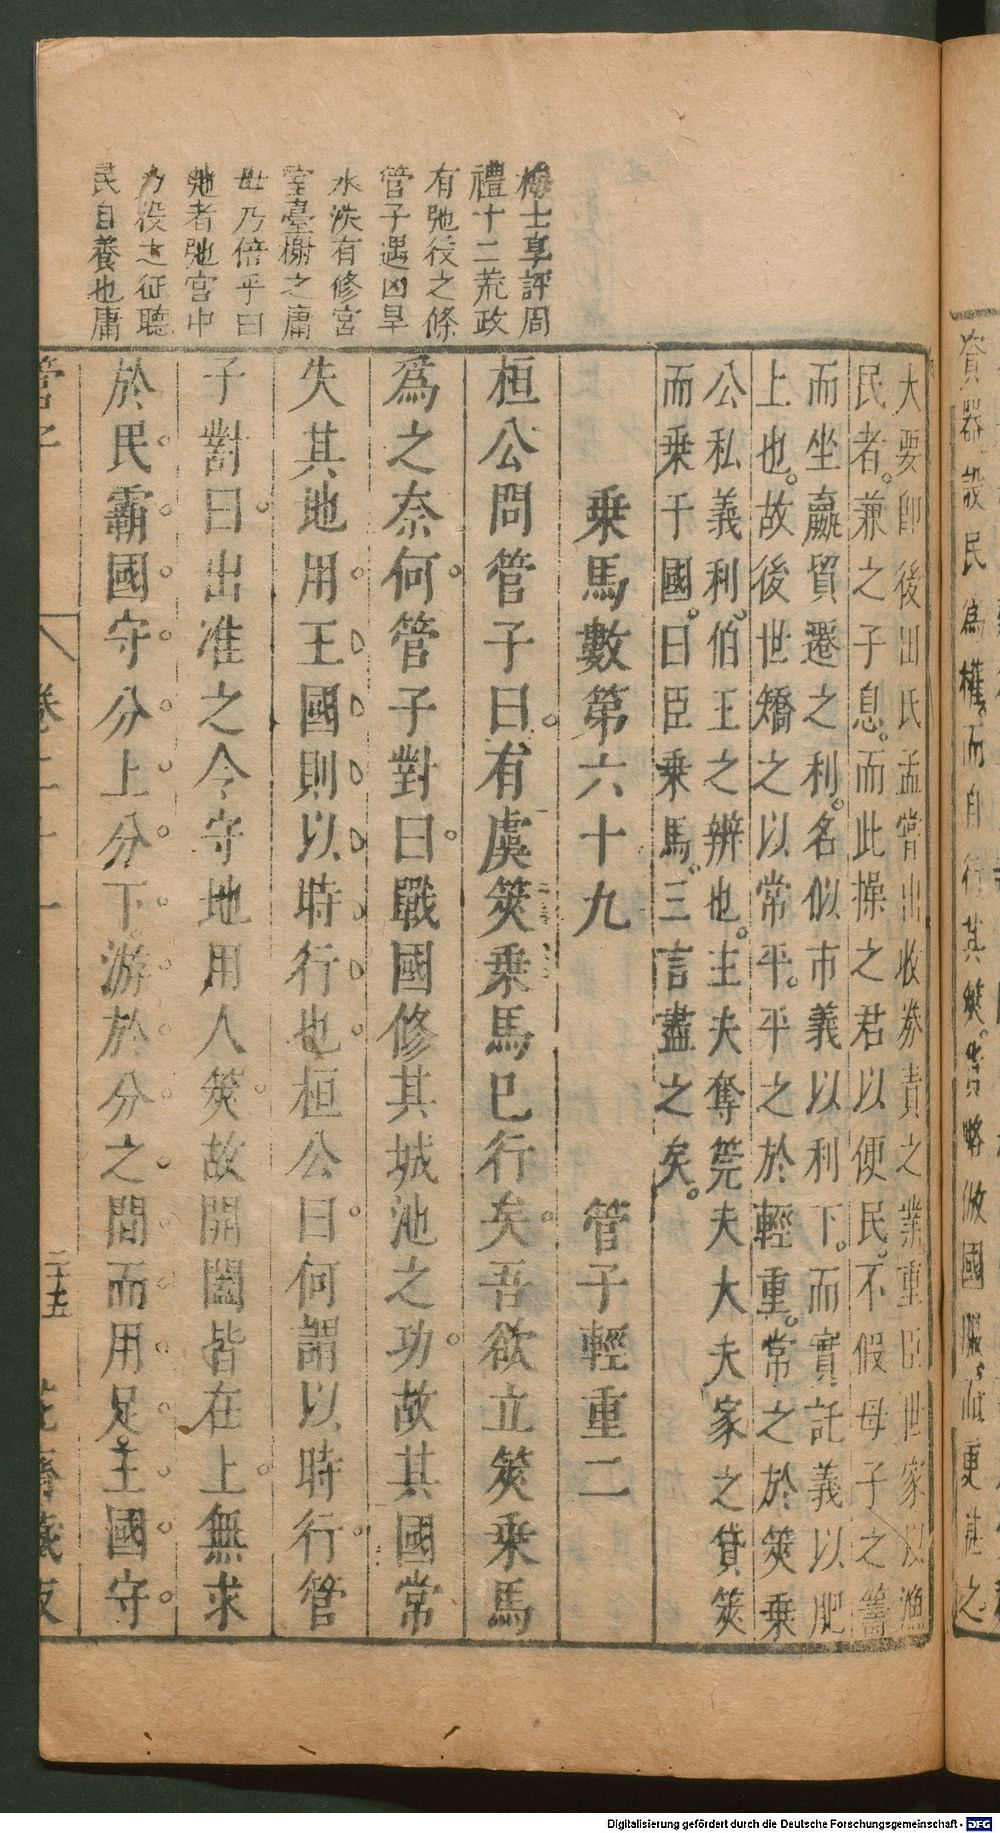 梅士享評周
禮十二荒政
有弛役之條
管子遇凶旱
水泆有修宮
室臺榭之庸
毋乃倍乎曰
弛者弛官中
力役之征聽
民自養也庸
貧器設民為權而自行其筴
做國服而更甚之
大要即後出民孟甞出收券責之業重臣世家以漁
民者兼之子息而此操之君以便民不假母子之籌
而坐嬴貿遷之利名似市義以利下而實託義以肥
上也故後世矯之以常平平之於輕重常之於筴乗
公私義利伯王之辨也主夫奪筦夫大夫家之貸筴
而乗于國曰臣乗馬三言盡之矣
乗馬數第六十九 管子輕重二
桓公問管子曰有虞筴乗馬巳行矣吾欲立筴乗馬
爲之奈何管子對曰戰國修其城池之功故其國常
失其地用王國則以時行也桓公曰何謂以時行管
子對曰出准之令守地用人筴故開闔皆在上無求
於民霸國守分上分下游於分之間而用足王國守
管子 卷二十一 二十五 花齋藏板
Digitalisierung gefördert durch die Deutsche Forschungsgemeinschaft - DFG